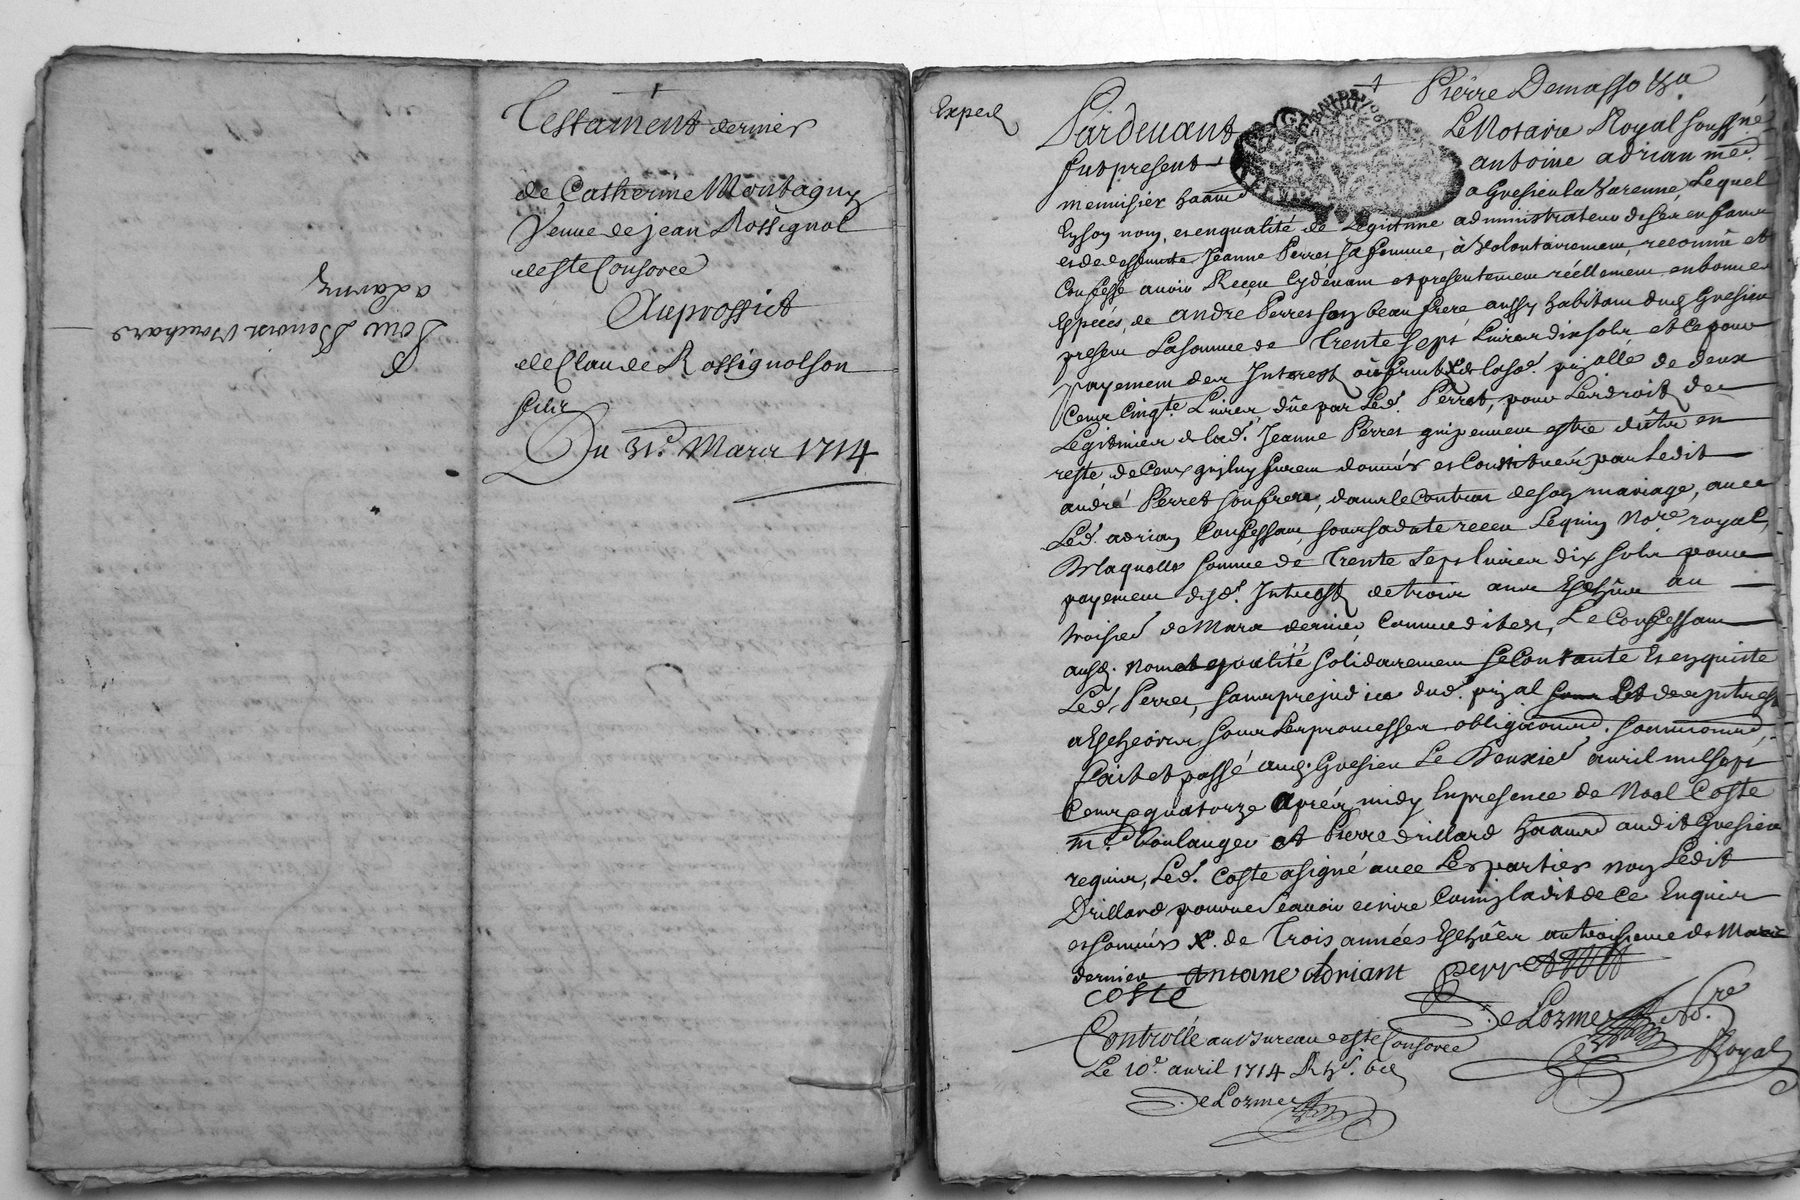 Testament dernier
de Catherine Montagny
Venue de jean Rossignol
de ste Consorce
Auprossict
de Claude Rossignol son
filz
Du 31e. Mars 1714
Pour Benoist Bouchard
a Larny
Exped
Pierre Demasso &a
Pardeuant Le Notaire Royal soussné
fut present antoine adrian me
menuisier haant a Gresieu la Varenne, Lequel
En son nom, et en qualité de Legitime administrateur de ses enfans
et de deffunte Jeanne Perret sa femme, à Volontairement reconnu et
Confessé auoir Reçeu Cydeuant et presentement réellement en bonnes
Especes, de andré Perret son beau frere aussy habitant dud Gresieu
present La somme de Trente sept Liures dix solz et Ce pour
payement des Interest de lasoe. pizalle de deux
Cent Cinqte. Liures dûe par Led. Perret, pour Les droit de
Legitimes de lad. Jeanne Perret qui peuuent estre dûtes en
reste de Ceux qui luy furent donnés et Constitués par Ledit
andré Perret son frere, dans le Contrat de son mariage, auec
Led. adrian Confessant, sous sa date receu Lequin Nore royal,
De laquelle somme de Trente Sept liures dix solz pour
payement desd. Interest de trois ans Escheus au
troisie de Mars dernier, Comme dit est, Le Confessant
ausd. nom et qualité solidairement se Contante Et en quitte
Led. Perret, sans prejudice dud. pizal et des Interest
a Escheoir, sous Les promesses obligaons. soumions.
fait et passé aud. Gresieu Le Deuxie auril mil sept
Cent quatorze apres midy En presence de Noel Coste
me Boulanger et Pierre Drillard haans audit Gresieu
requis, Led. Coste a signé auec Les parties non Ledit
Drillard pour ne sçauoir ecrire Comme il a dit de ce Enquis
et sommés X. de Trois années Escheües au troisieme de Mars
dernier antoine Adriant Perret
coste
De Lorme Nre
Royal
Controllé au Bureau de ste Consorce
Le 10e. auril 1714
De Lorme